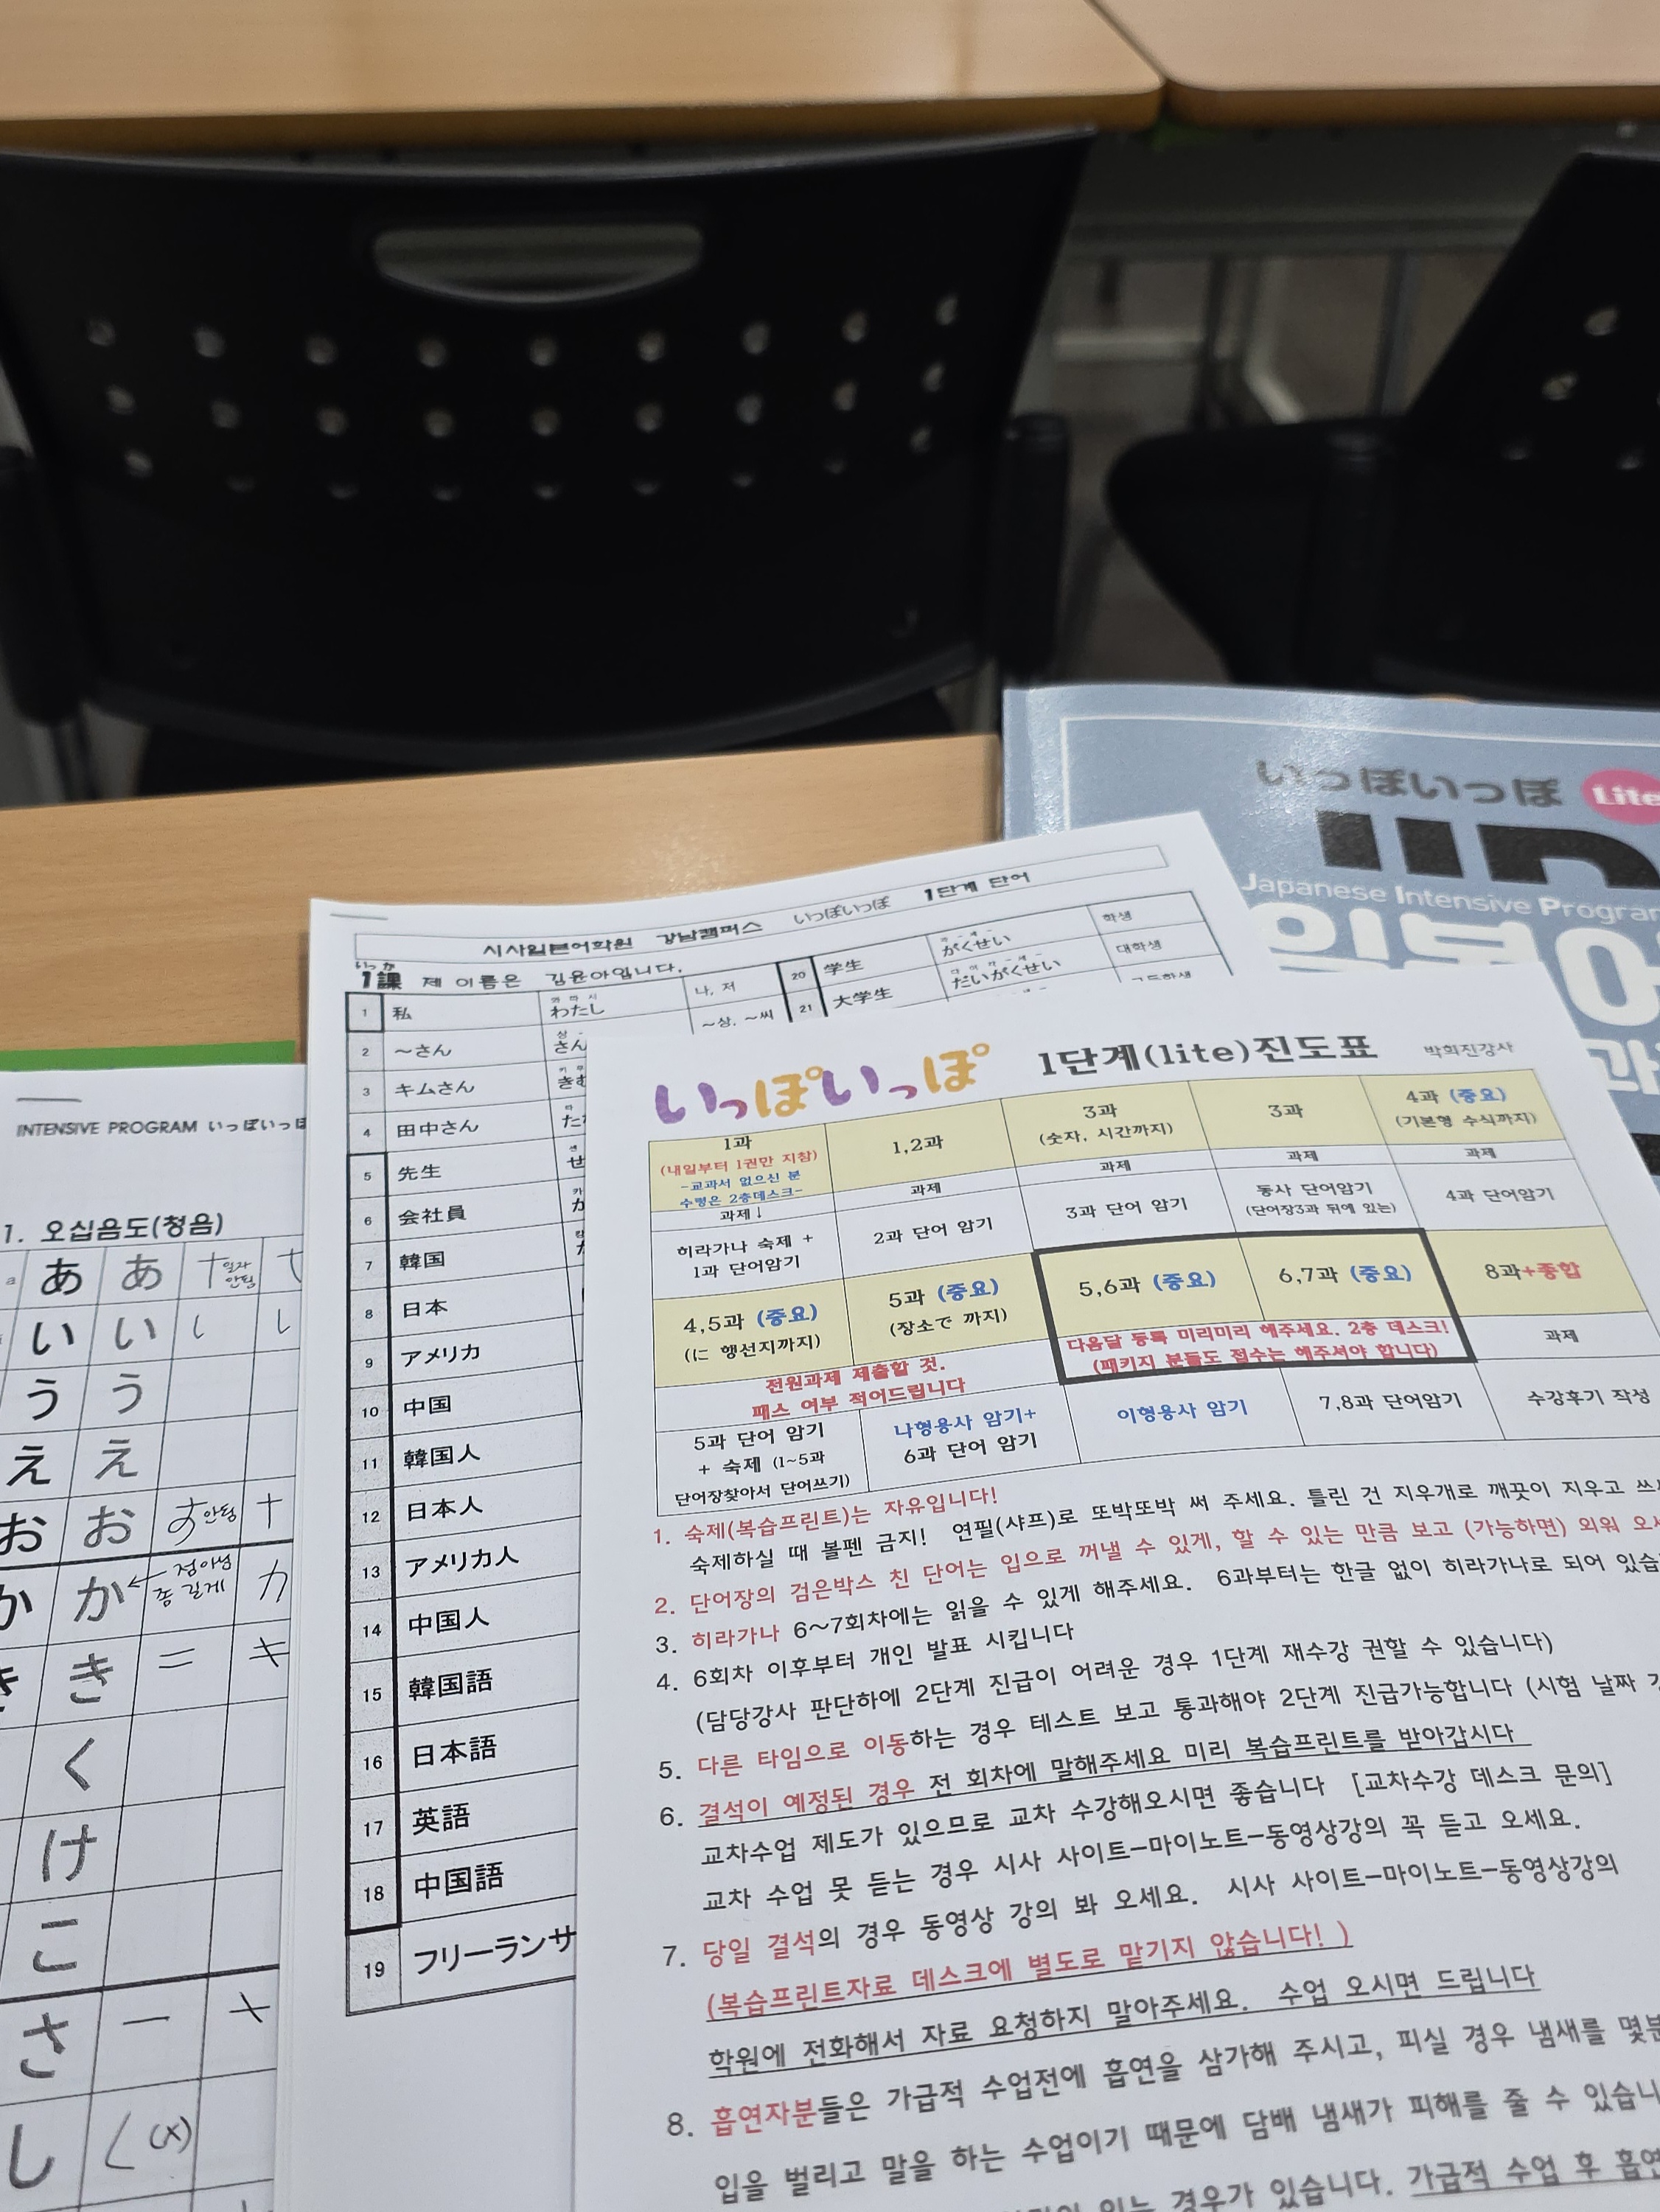 いっぽいっぽ Lite
Japanese Intensive Program
일본어
시사일본어학원 강남캠퍼스 いっぽいっぽ 1단계 단어
いっか
1課 제 이름은 김윤아입니다.
1 私 わたし 나, 저
2 ~さん さん ~상. ~씨
3 キムさん
4 田中さん
5 先生
6 会社員
7 韓国
8 日本
9 アメリカ
10 中国
11 韓国人
12 日本人
13 アメリカ人
14 中国人
15 韓国語
16 日本語
17 英語
18 中国語
19 フリーランサ
20 学生 がくせい 학생
21 大学生 だいがくせい 대학생
INTENSIVE PROGRAM いっぽいっぽ
1. 오십음도(청음)
a あ あ
い い
う う
え え
お お 안됨
か か ← 점아님 좀 길게 カ
き き 二 キ
く
け
こ
さ
し (x)
いっぽいっぽ 1단계(lite)진도표 박희진강사
1과
(내일부터 1권만 지참)
-교과서 없으신 분
수령은 2층데스크-
1,2과
3과
(숫자, 시간까지)
3과
4과 (중요)
(기본형 수식까지)
과제↓
과제
과제
과제
과제
히라가나 숙제 +
1과 단어암기
2과 단어 암기
3과 단어 암기
동사 단어암기
(단어장3과 뒤에 있는)
4과 단어암기
4,5과 (중요)
(に 행선지까지)
5과 (중요)
(장소で 까지)
5,6과 (중요)
6,7과 (중요)
8과+종합
전원과제 제출할 것.
패스 여부 적어드립니다
다음달 등록 미리미리 해주세요. 2층 데스크!
(패키지 분들도 접수는 해주셔야 합니다)
과제
5과 단어 암기
+ 숙제 (1~5과
단어장찾아서 단어쓰기)
나형용사 암기+
6과 단어 암기
이형용사 암기
7,8과 단어암기
수강후기 작성
1. 숙제(복습프린트)는 자유입니다!
숙제하실 때 볼펜 금지! 연필(샤프)로 또박또박 써 주세요. 틀린 건 지우개로 깨끗이 지우고
2. 단어장의 검은박스 친 단어는 입으로 꺼낼 수 있게, 할 수 있는 만큼 보고 (가능하면) 외워
3. 히라가나 6~7회차에는 읽을 수 있게 해주세요. 6과부터는 한글 없이 히라가나로 되어
4. 6회차 이후부터 개인 발표 시킵니다
(담당강사 판단하에 2단계 진급이 어려운 경우 1단계 재수강 권할 수 있습니다)
5. 다른 타임으로 이동하는 경우 테스트 보고 통과해야 2단계 진급가능합니다 (시험 날짜
6. 결석이 예정된 경우 전 회차에 말해주세요 미리 복습프린트를 받아갑시다
교차수업 제도가 있으므로 교차 수강해오시면 좋습니다 [교차수강 데스크 문의]
교차 수업 못 듣는 경우 시사 사이트-마이노트-동영상강의 꼭 듣고 오세요.
7. 당일 결석의 경우 동영상 강의 봐 오세요. 시사 사이트-마이노트-동영상강의
(복습프린트자료 데스크에 별도로 맡기지 않습니다! )
학원에 전화해서 자료 요청하지 말아주세요. 수업 오시면 드립니다
8. 흡연자분들은 가급적 수업전에 흡연을 삼가해 주시고, 피실 경우 냄새를
입을 벌리고 말을 하는 수업이기 때문에 담배 냄새가 피해를 줄 수
경우가 있습니다. 가급적 수업 후